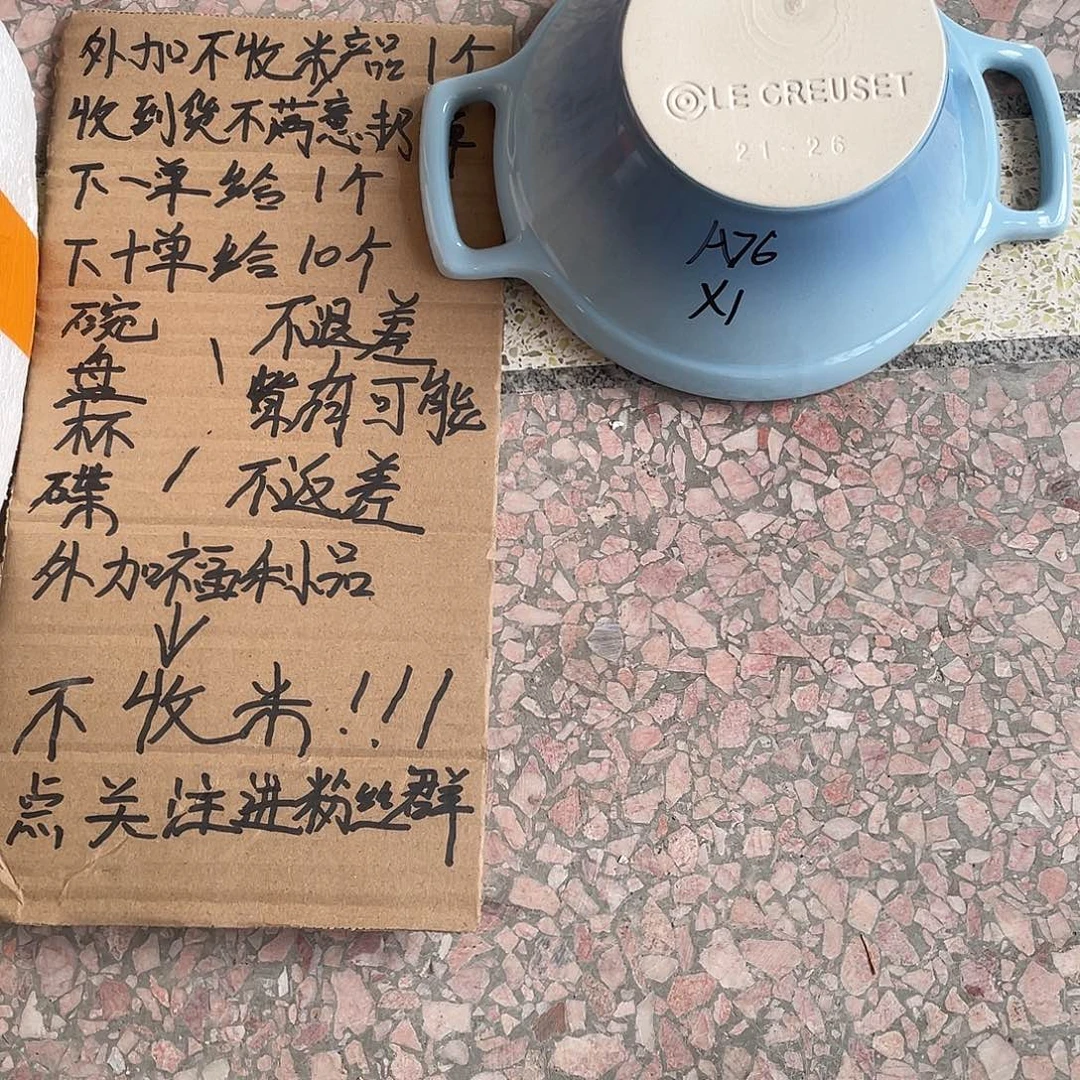 外加不收米产品1个
收到货不满意封单
下一单给1个
下十单给10个
碗 不退差
盘 \ 皆有可能
杯
碟 / 不返差
外加福利品
↓
不收米!!!
点关注进粉丝群
LE CREUSET
21-26
A76
X1